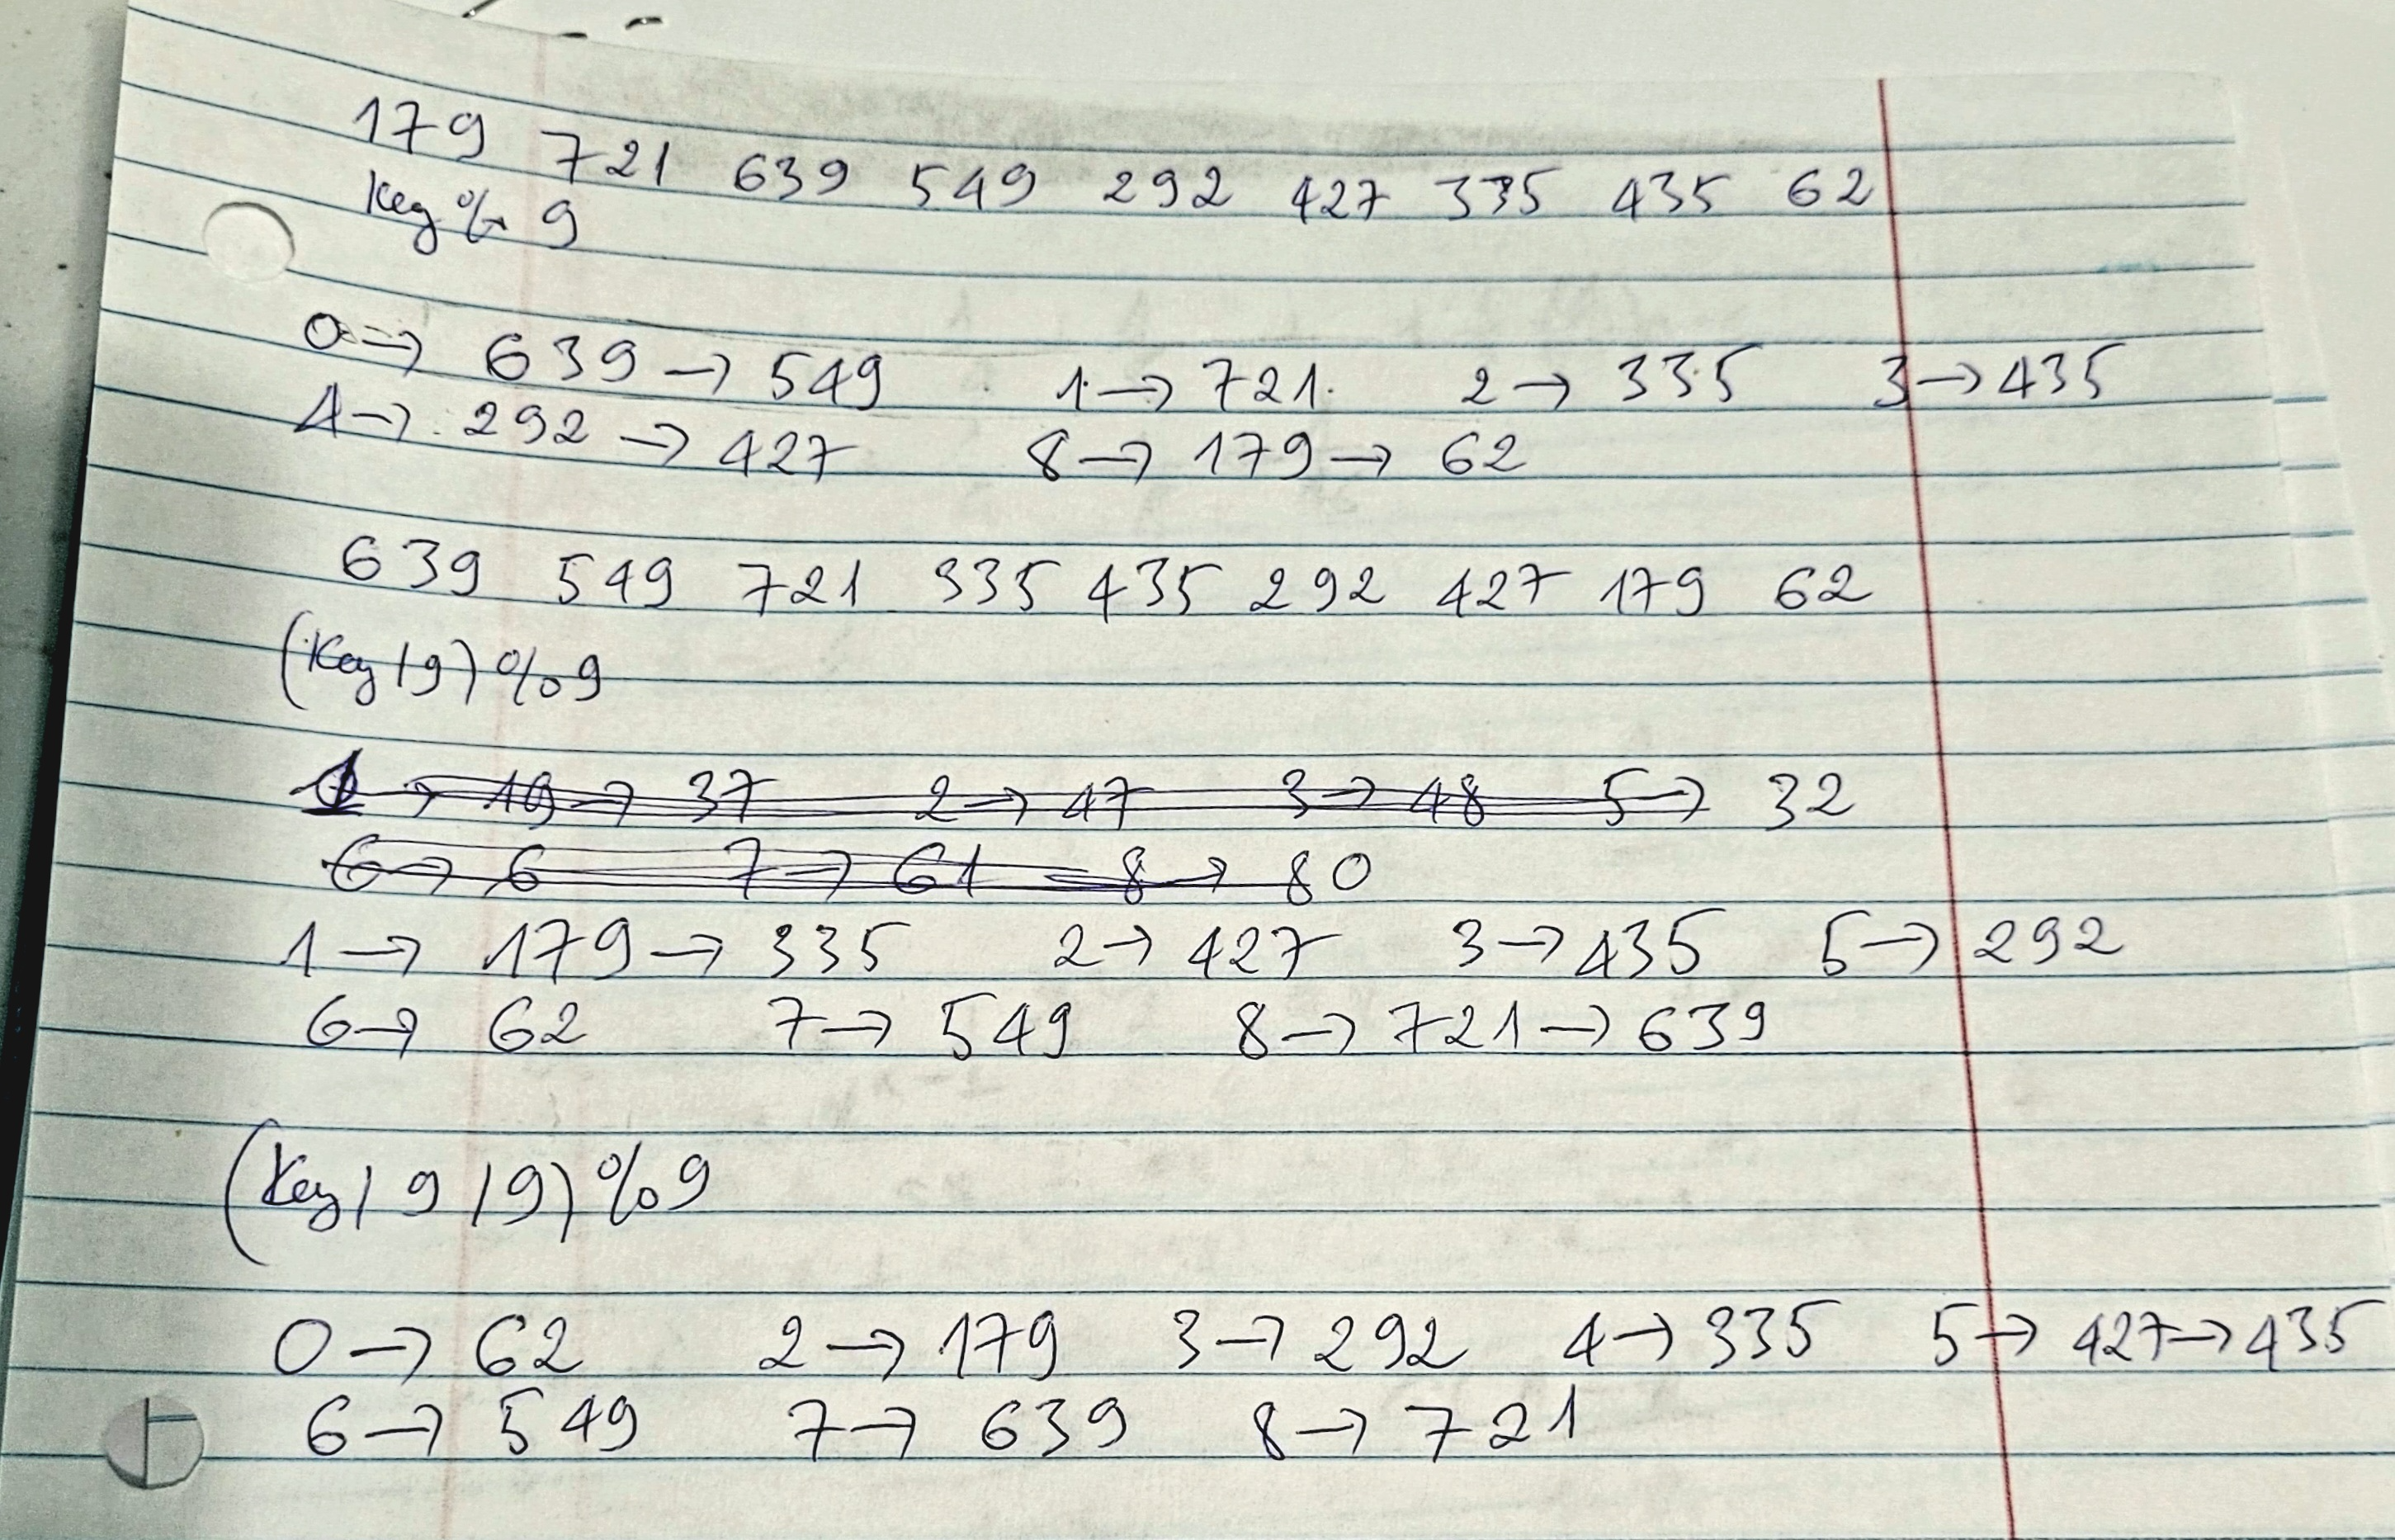 179 721 639 549 292 427 335 435 62
Key % 9
0 → 639 → 549 1 → 721 2 → 335 3 → 435
4 → 292 → 427 8 → 179 → 62
639 549 721 335 435 292 427 179 62
(Key / 9) % 9
1 → 19 → 37 2 → 47 3 → 48 5 → 32
6 → 6 7 → 61 8 → 80
1 → 179 → 335 2 → 427 3 → 435 5 → 292
6 → 62 7 → 549 8 → 721 → 639
(Key / 9 / 9) % 9
0 → 62 2 → 179 3 → 292 4 → 335 5 → 427 → 435
6 → 549 7 → 639 8 → 721